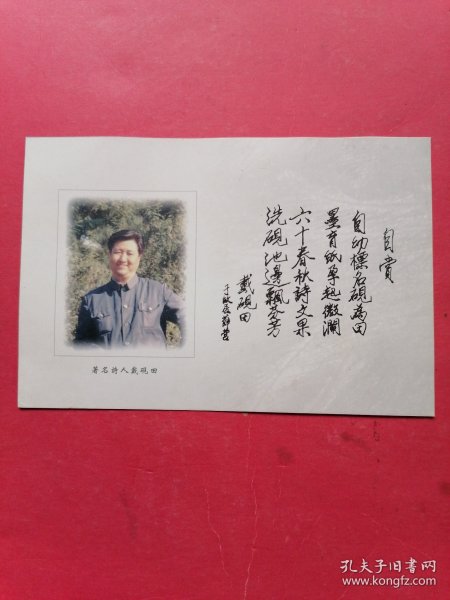 自賞
自幼標名硯為田
墨育紙尊起微瀾
六十春秋詩文果
洗硯池邊飄芬芳
戴硯田
著名詩人戴硯田
孔夫子旧书网
www.kongfz.com